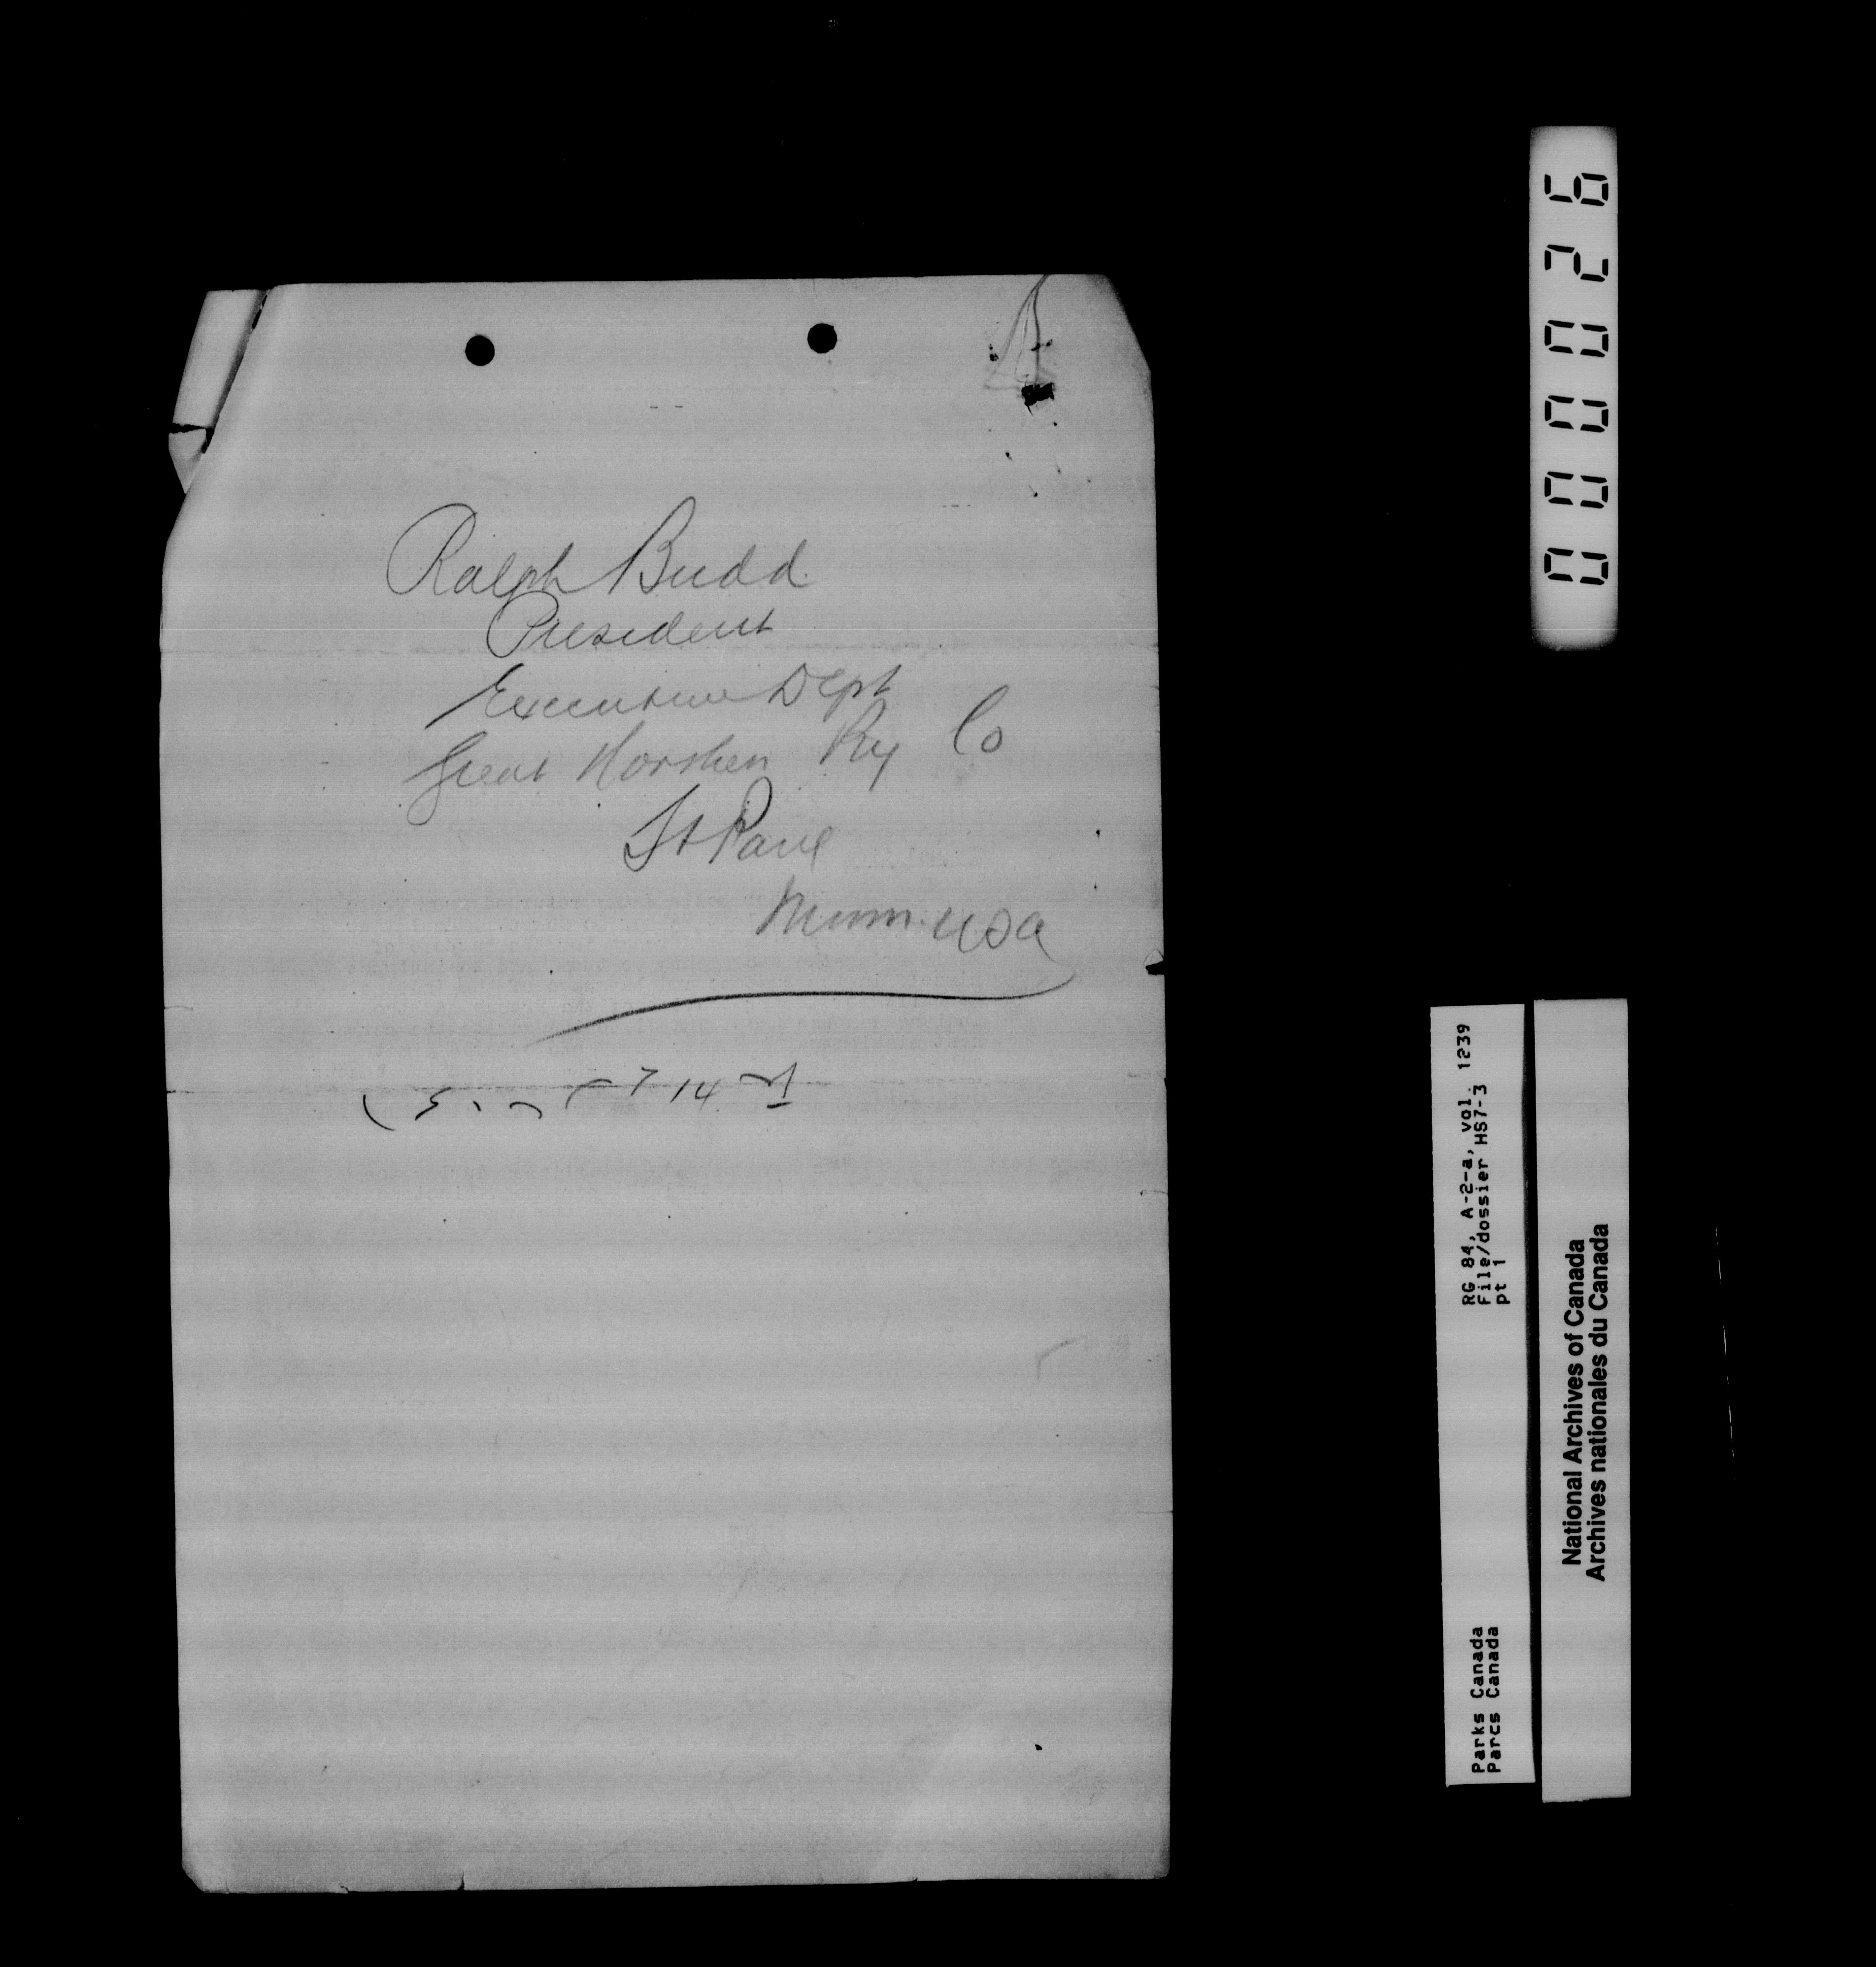 Ralph Budd
President
Executive Dept
Great Northern Ry Co
St Paul
Minn. USA
14
000026
RG 84, A-2-a, vol. 1239
File/dossier HS7-3
pt 1
Parks Canada
Parcs Canada
National Archives of Canada
Archives nationales du Canada